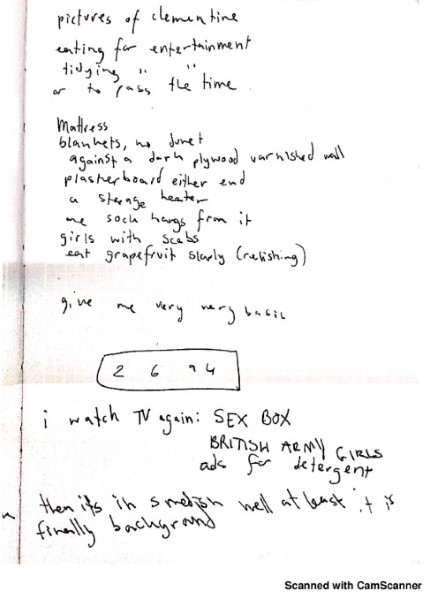 pictures of clementine
eating for entertainment
tidying " "
or to pass the time
Mattress
blankets, no duvet
against a dark plywood varnished wall
plasterboard either end
a storage heater
one sock hangs from it
girls with scabs
eat grapefruit slowly (relishing)
give me very very basic
2 6 94
i watch TV again: SEX BOX
BRITISH ARMY GIRLS
ads for detergent
then its in swedish well at least it is
finally background
Scanned with CamScanner